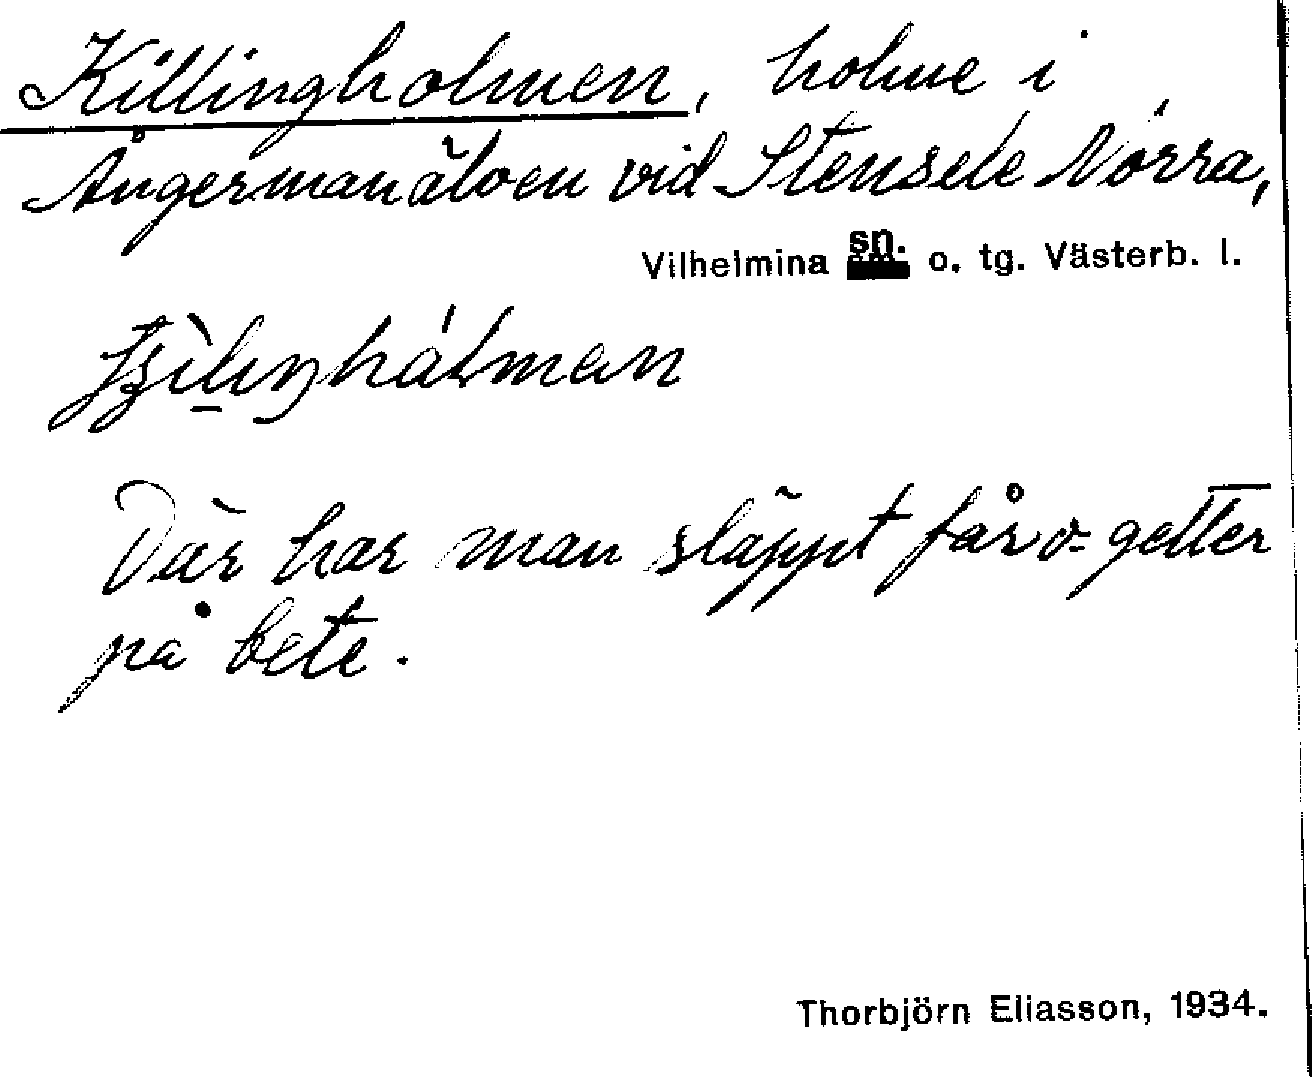 Killingholmen, holme i
Ångermanälven vid Stensele Norra,
Vilhelmina sn. o. tg. Västerb. l.
Där har man släppt får o. getter
på bete.
Thorbjörn Eliasson, 1934.